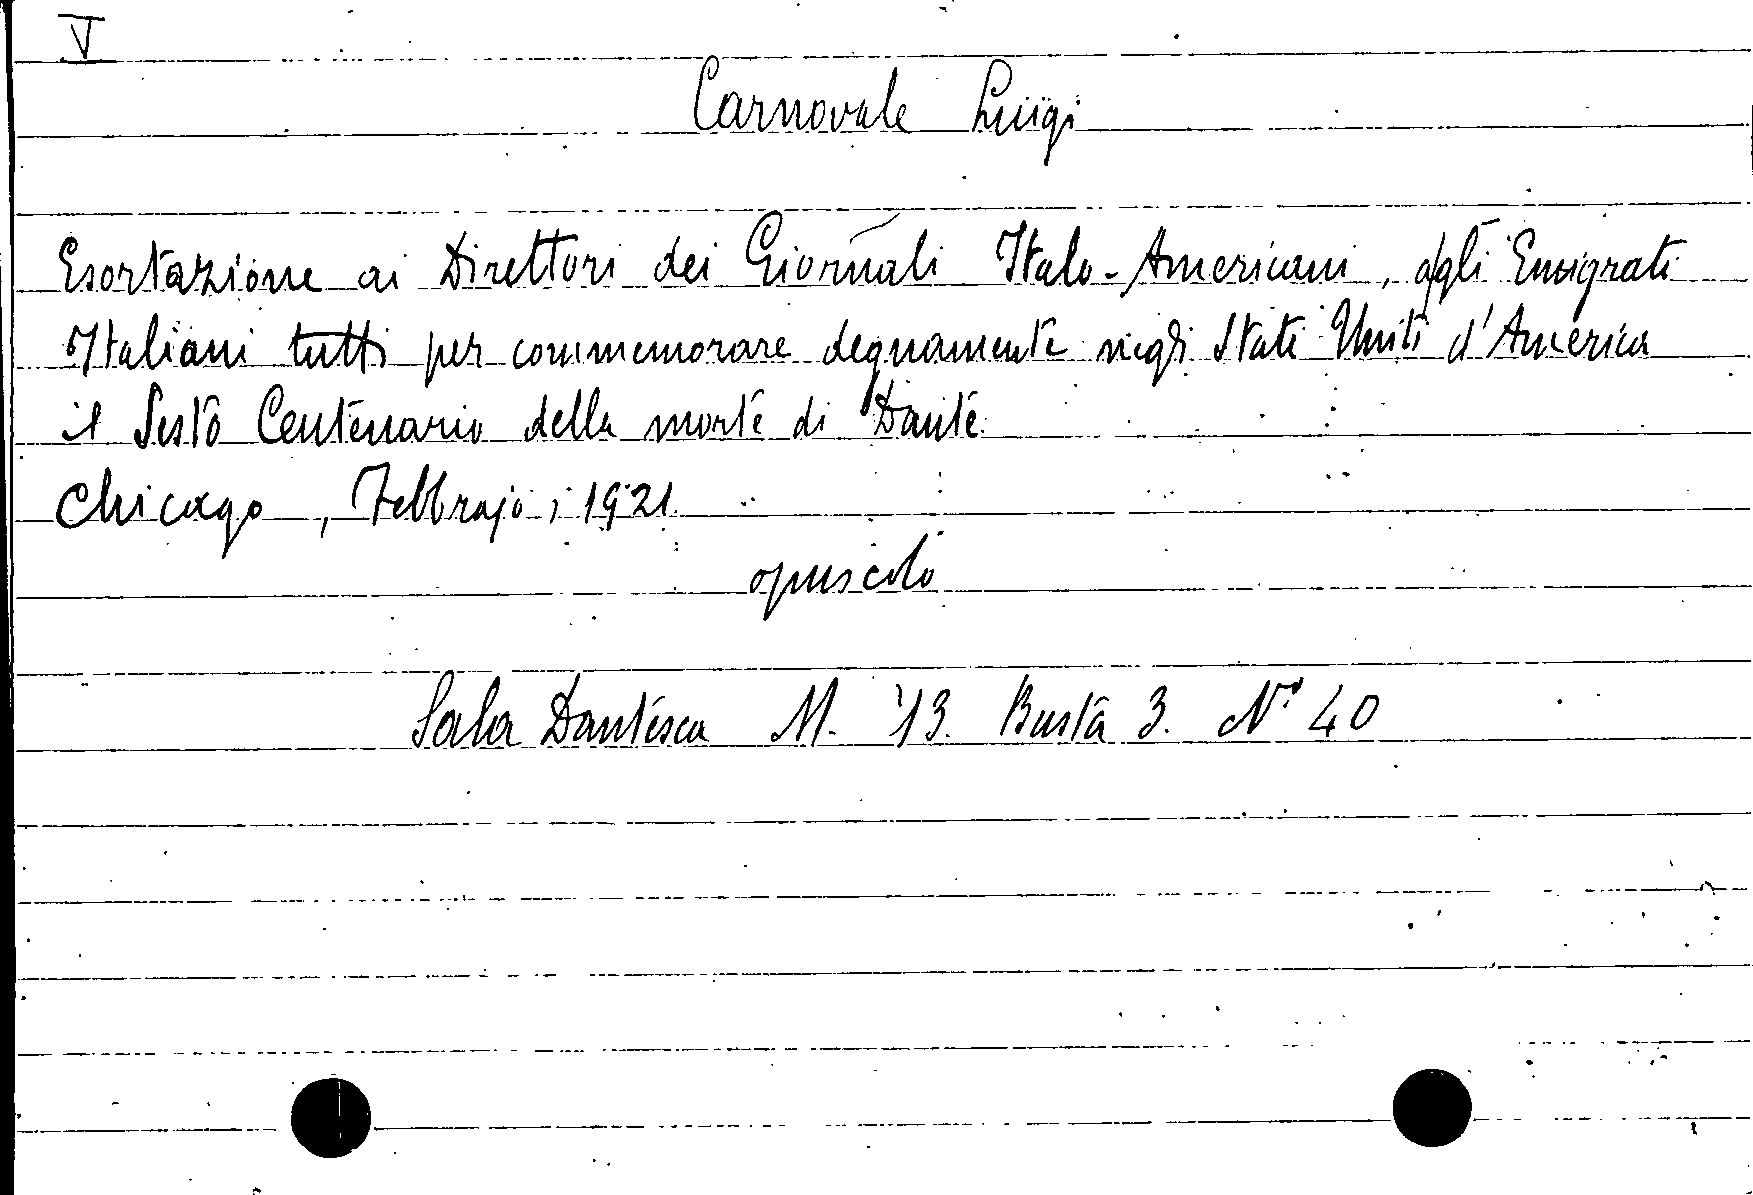 V
Carnovale Luigi
Esortazione ai Direttori dei Giornali Italo-Americani, agli Emigrati
Italiani tutti per commemorare degnamente negli Stati Uniti d'America
il Sesto Centenario della morte di Dante
Chicago, Febbrajo, 1921
opuscolo
Sala Dantesca M. 13. Busta 3. N° 40